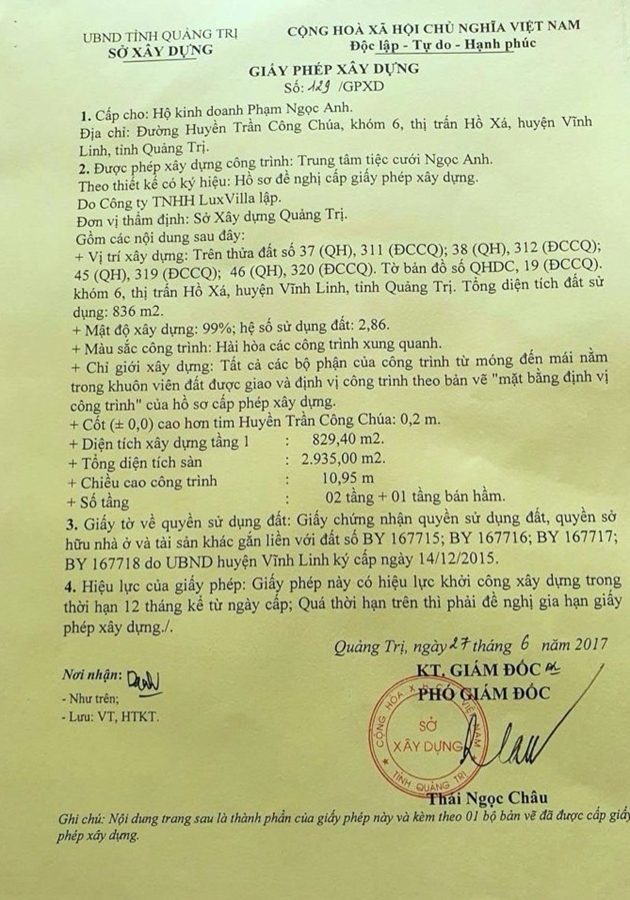 UBND TỈNH QUẢNG TRỊ
SỞ XÂY DỰNG
CỘNG HOÀ XÃ HỘI CHỦ NGHĨA VIỆT NAM
Độc lập - Tự do - Hạnh phúc
GIẤY PHÉP XÂY DỰNG
Số: 129 /GPXD
1. Cấp cho: Hộ kinh doanh Phạm Ngọc Anh.
Địa chỉ: Đường Huyền Trần Công Chúa, khóm 6, thị trấn Hồ Xá, huyện Vĩnh
Linh, tỉnh Quảng Trị.
2. Được phép xây dựng công trình: Trung tâm tiệc cưới Ngọc Anh.
Theo thiết kế có ký hiệu: Hồ sơ đề nghị cấp giấy phép xây dựng.
Do Công ty TNHH LuxVilla lập.
Đơn vị thẩm định: Sở Xây dựng Quảng Trị.
Gồm các nội dung sau đây:
+ Vị trí xây dựng: Trên thửa đất số 37 (QH), 311 (ĐCCQ); 38 (QH), 312 (ĐCCQ);
45 (QH), 319 (ĐCCQ); 46 (QH), 320 (ĐCCQ). Tờ bản đồ số QHDC, 19 (ĐCCQ).
khóm 6, thị trấn Hồ Xá, huyện Vĩnh Linh, tỉnh Quảng Trị. Tổng diện tích đất sử
dụng: 836 m2.
+ Mật độ xây dựng: 99%; hệ số sử dụng đất: 2,86.
+ Màu sắc công trình: Hài hòa các công trình xung quanh.
+ Chỉ giới xây dựng: Tất cả các bộ phận của công trình từ móng đến mái nằm
trong khuôn viên đất được giao và định vị công trình theo bản vẽ "mặt bằng định vị
công trình" của hồ sơ cấp phép xây dựng.
+ Cốt (± 0,0) cao hơn tim Huyền Trần Công Chúa: 0,2 m.
+ Diện tích xây dựng tầng 1 : 829,40 m2.
+ Tổng diện tích sàn : 2.935,00 m2.
+ Chiều cao công trình : 10,95 m
+ Số tầng : 02 tầng + 01 tầng bán hầm.
3. Giấy tờ về quyền sử dụng đất: Giấy chứng nhận quyền sử dụng đất, quyền sở
hữu nhà ở và tài sản khác gắn liền với đất số BY 167715; BY 167716; BY 167717;
BY 167718 do UBND huyện Vĩnh Linh ký cấp ngày 14/12/2015.
4. Hiệu lực của giấy phép: Giấy phép này có hiệu lực khởi công xây dựng trong
thời hạn 12 tháng kể từ ngày cấp; Quá thời hạn trên thì phải đề nghị gia hạn giấy
phép xây dựng./.
Quảng Trị, ngày 27 tháng 6 năm 2017
Nơi nhận:
- Như trên;
- Lưu: VT, HTKT.
KT. GIÁM ĐỐC
PHÓ GIÁM ĐỐC
CỘNG HÒA X.H.C.N VIỆT NAM
SỞ
XÂY DỰNG
TỈNH QUẢNG TRỊ
Thái Ngọc Châu
Ghi chú: Nội dung trang sau là thành phần của giấy phép này và kèm theo 01 bộ bản vẽ đã được cấp giấy
phép xây dựng.